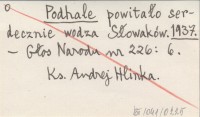 Podhale powitało ser-
decznie wodza Słowaków. 1937.
– Głos Narodu nr 226: 6.
Ks. Andrej Hlinka.